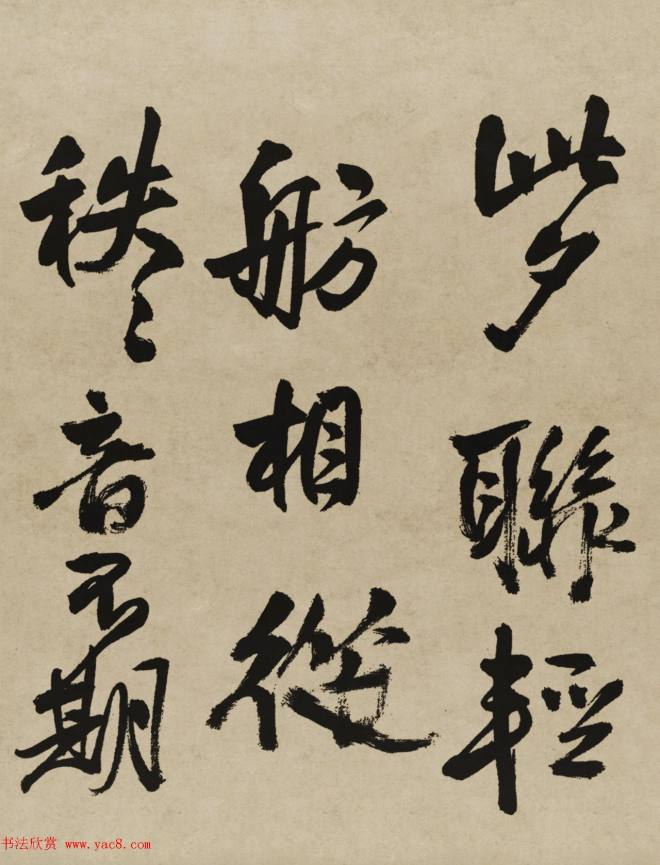 此夕聯輕
舫相從
秩〻音不期
书法欣赏 www.yac8.com